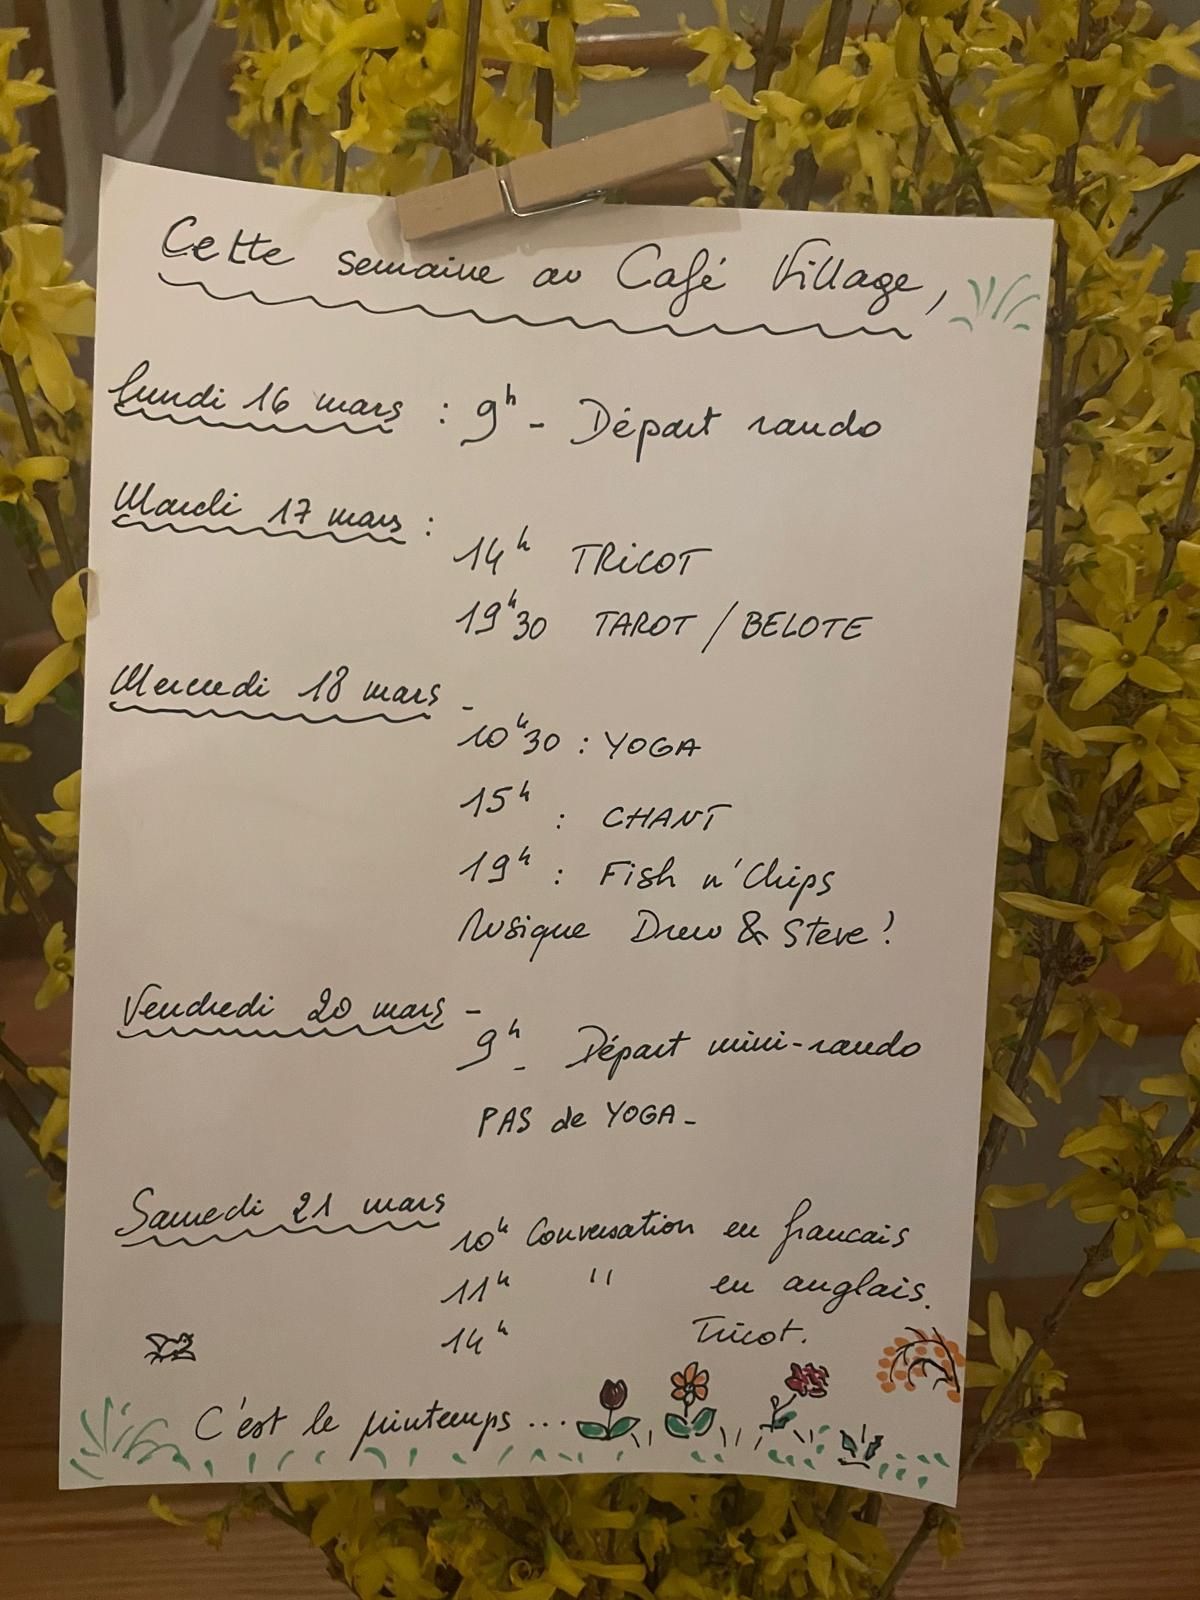 Cette semaine au Café Village,
Lundi 16 mars : 9h - Départ rando
Mardi 17 mars :
14h TRICOT
19h30 TAROT / BELOTE
Mercredi 18 mars -
10h30 : YOGA
15h : CHANT
19h : Fish n'Chips
Musique Drew & Steve !
Vendredi 20 mars -
9h - Départ mini-rando
PAS de YOGA -
Samedi 21 mars
10h Conversation en francais
11h " en anglais.
14h Tricot.
C'est le printemps ...